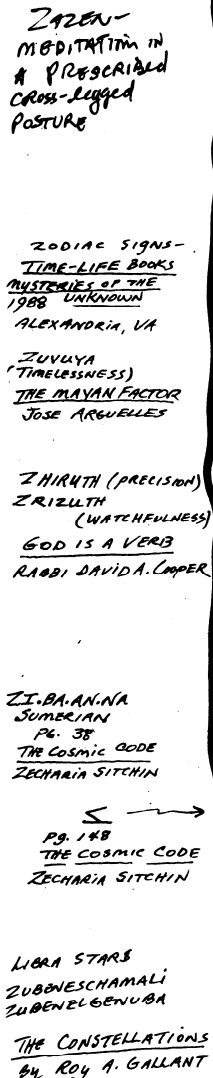 ZAZEN-
MEDITATION IN
A PRESCRIBED
CROSS-legged
POSTURE
ZODIAC SIGNS-
TIME-LIFE BOOKS
MYSTERIES OF THE
1988 UNKNOWN
ALEXANDRIA, VA
ZUVUYA
(TIMELESSNESS)
THE MAYAN FACTOR
JOSE ARGUELLES
ZHIRUTH (PRECISION)
ZRIZUTH
(WATCHFULNESS)
GOD IS A VERB
RABBI DAVID A. COOPER
ZI.BA.AN.NA
SUMERIAN
PG. 38
THE COSMIC CODE
ZECHARIA SITCHIN
Pg. 148
THE COSMIC CODE
ZECHARIA SITCHIN
LIBRA STARS
ZUBENESCHAMALI
ZUBENELGENUBA
THE CONSTELLATIONS
By ROY A. GALLANT